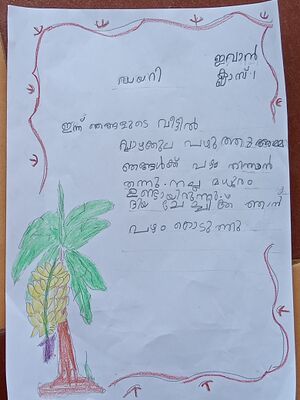 ഇവാൻ
ഡയറി ക്ലാസ്-1
ഇന്ന് ഞങ്ങളുടെ വീട്ടിൽ
വാഴക്കുല പഴുത്തു അമ്മ
ഞങ്ങൾക്ക് പഴം തിന്നാൻ
തന്നു. നല്ല മധുരം
ഉണ്ടായിരുന്നു.
ദിയ ചേച്ചിക്ക് ഞാൻ
പഴം കൊടുത്തു